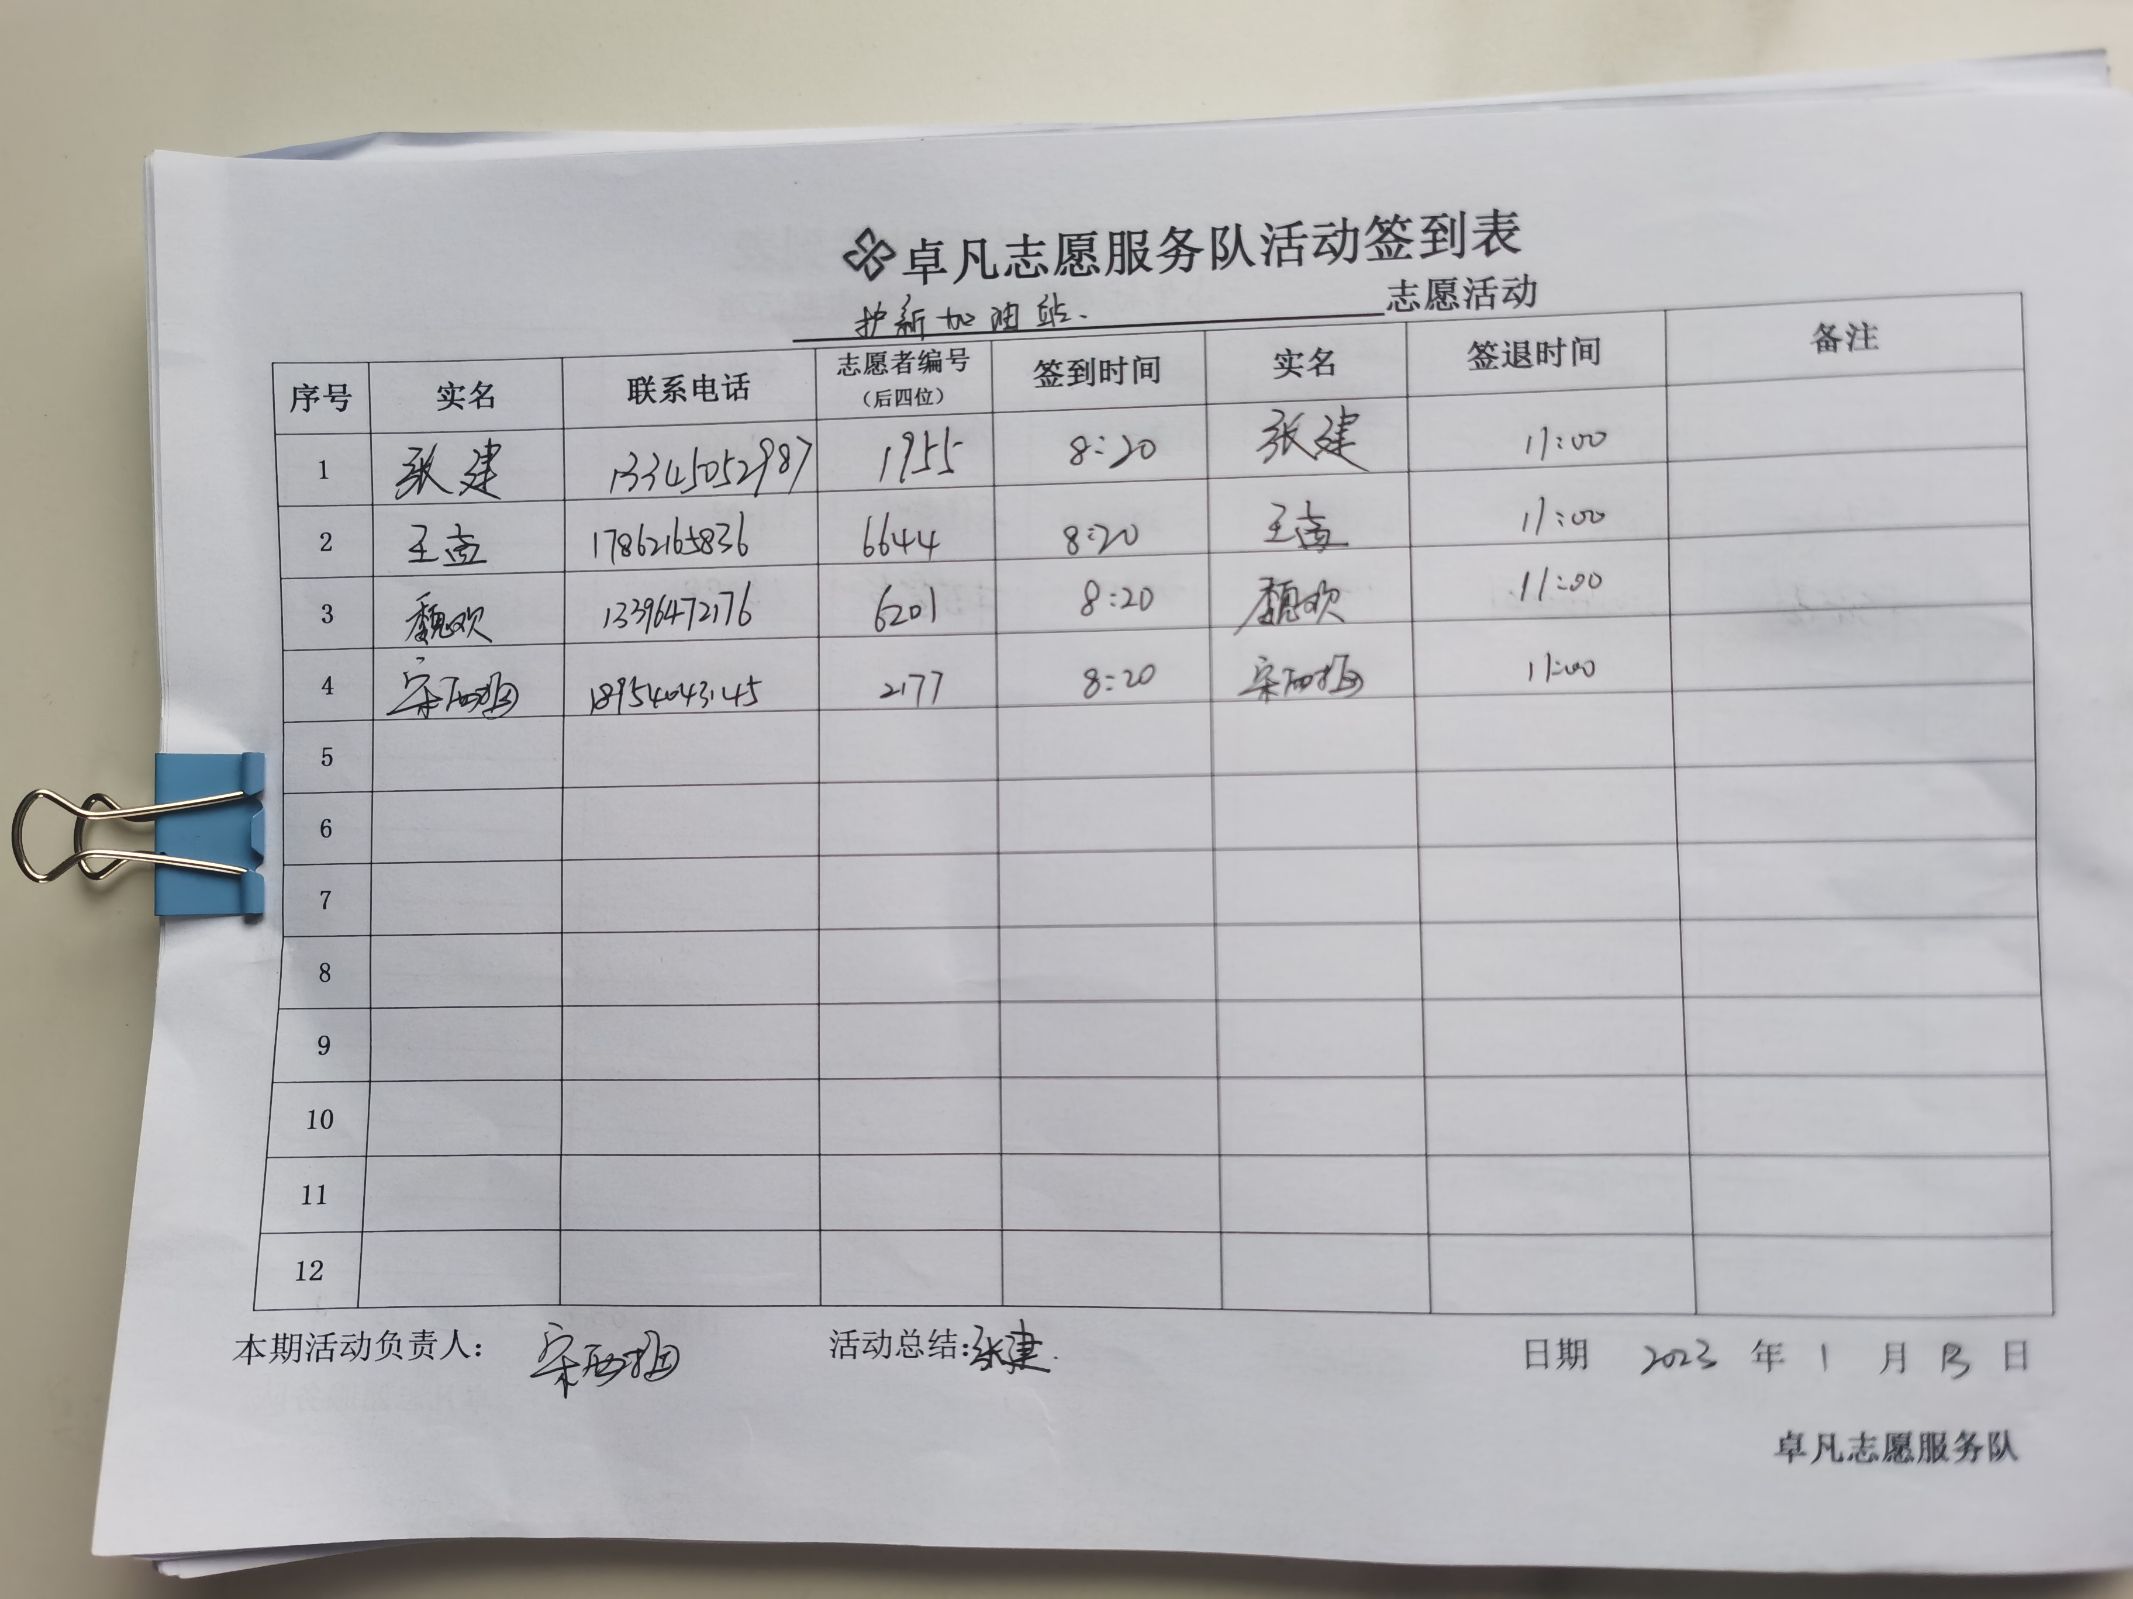 卓凡志愿服务队活动签到表
护新加油站. 志愿活动
序号 实名 联系电话 志愿者编号（后四位） 签到时间 实名 签退时间 备注
1 张建 13345052987 1955 8:20 张建 11:00
2 王 17862165836 6644 8:20 王 11:00
3 魏欢 13396472176 6201 8:20 魏欢 11:00
4 宋 18954043145 2177 8:20 宋 11:00
5
6
7
8
9
10
11
12
本期活动负责人： 宋 活动总结:张建. 日期 2023 年 1 月 13 日
卓凡志愿服务队